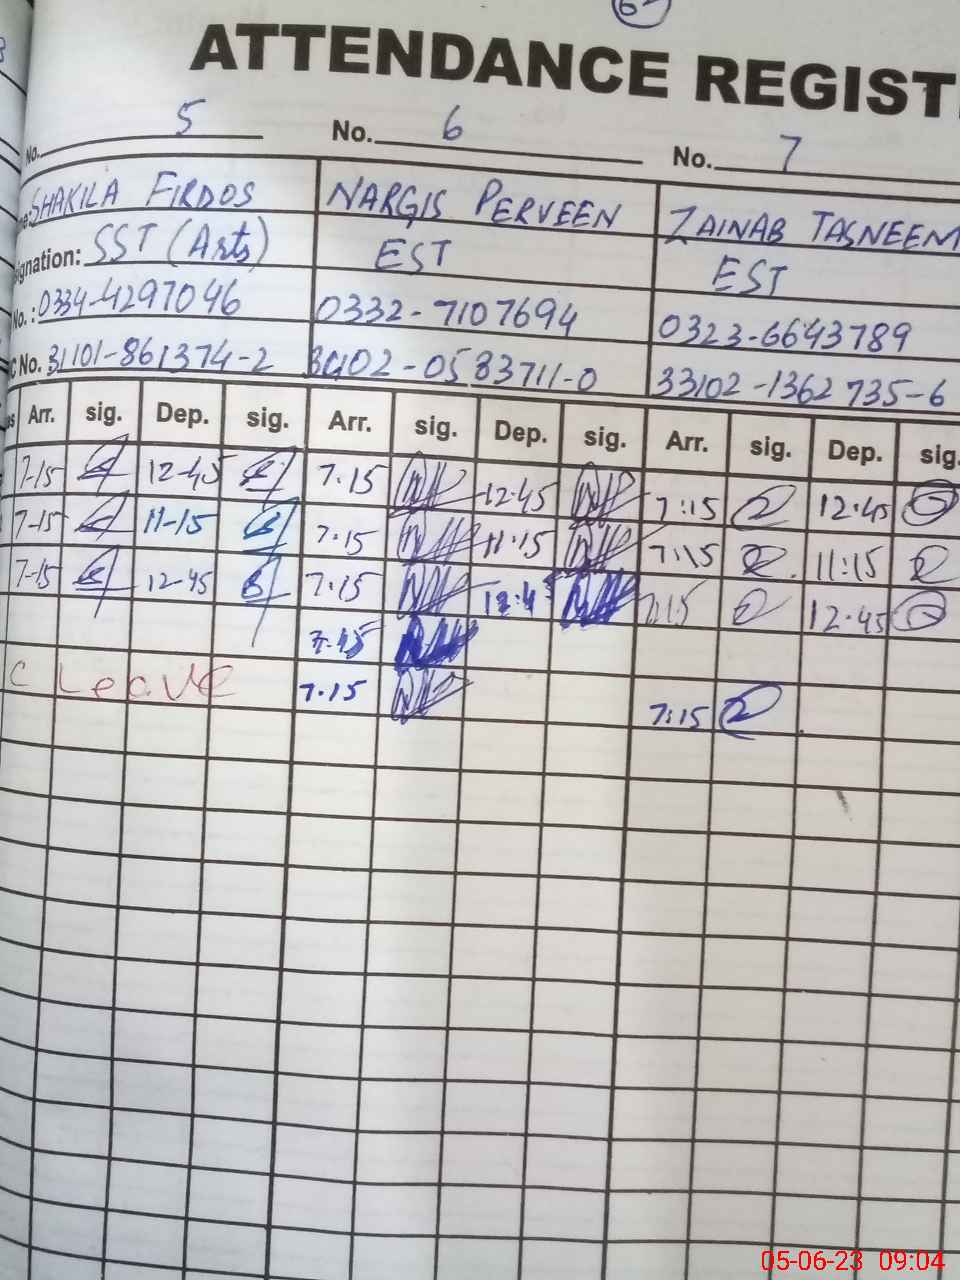 6
ATTENDANCE REGIST
No. 5 No. 6 No. 7
SHAKILA FIRDOS NARGIS PERVEEN ZAINAB TASNEEM
ignation: SST (Arts) EST EST
No. : 0334-4297046 0332-7107694 0323-6643789
C No. 31101-861374-2 02-0583711-0 33102-1362735-6
Arr. sig. Dep. sig. Arr. sig. Dep. sig. Arr. sig. Dep. sig.
7-15 12-45 7.15 12.45 7:15 12.45
7-15 11-15 7.15 11.15 7:15 11:15
7-15 12-45 7.15 12:4 7:15 12.45
C Leave 7.15 7:15
05-06-23 09:04